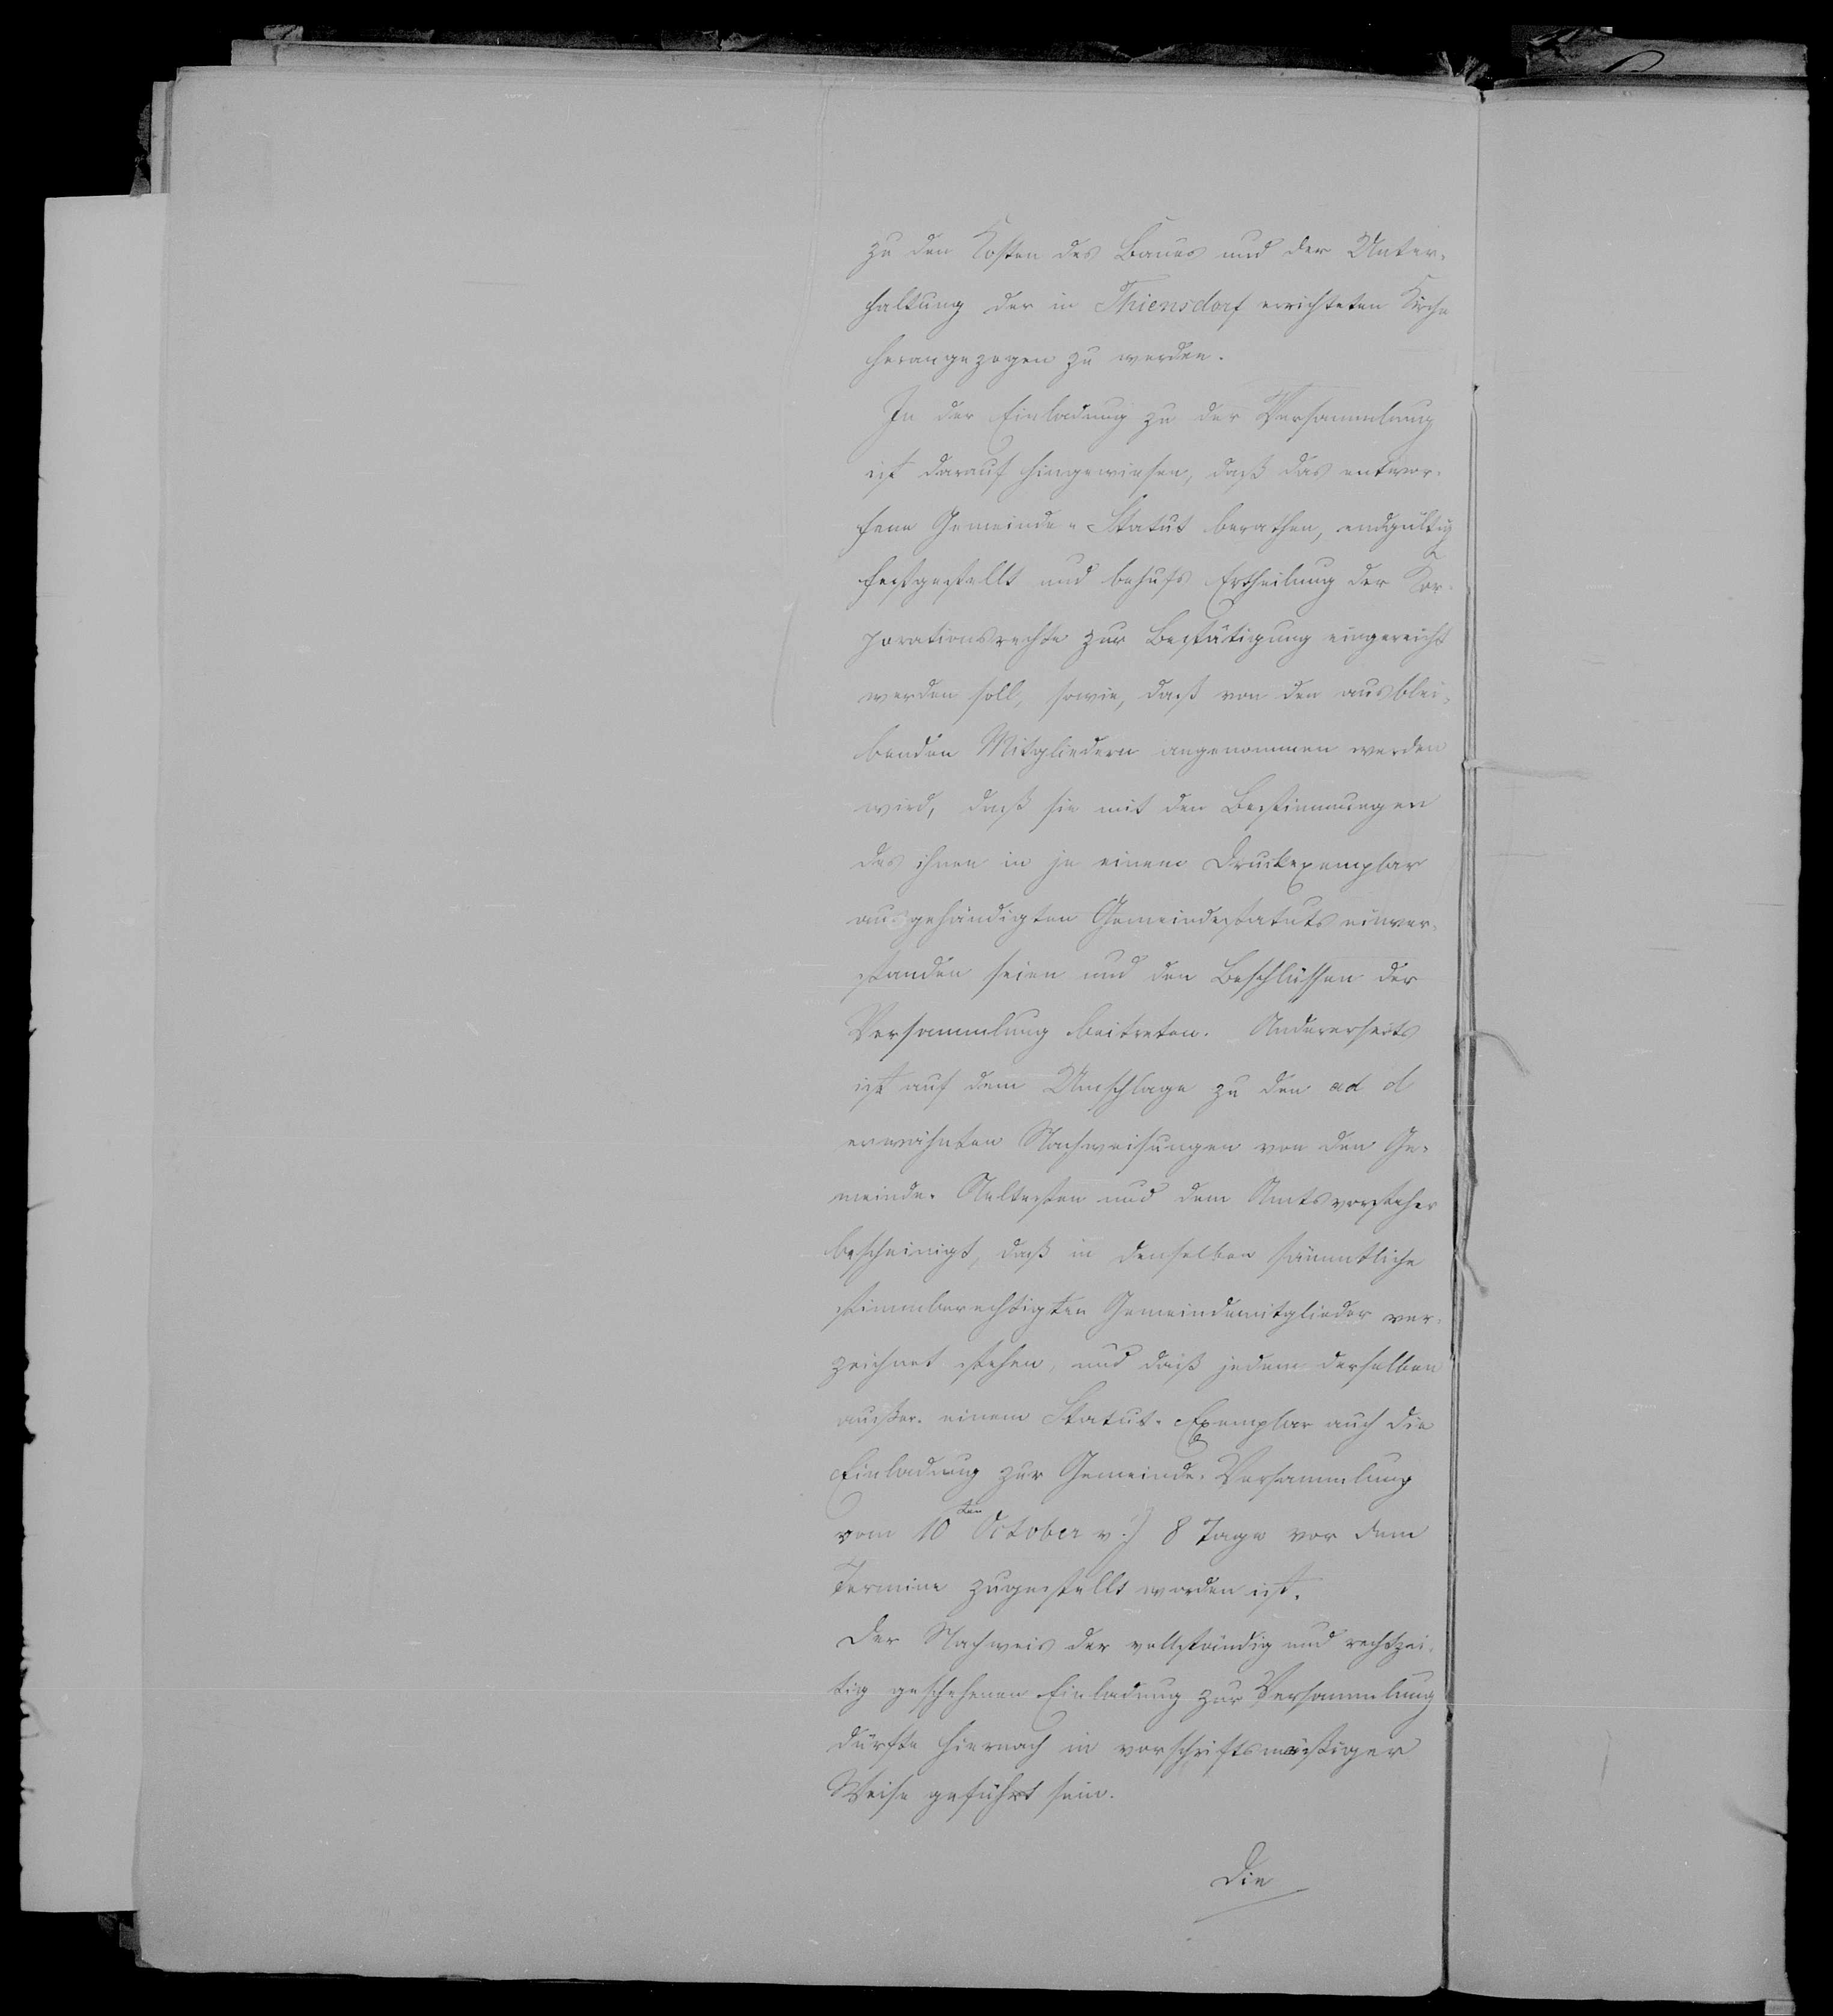 zu den Kosten des Baues und der Unter-
haltung der in Thiensdorf errichteten Kirche
herangezogen zu werden.
In der Einladung zu der Versammlung
ist darauf hingewiesen, daß das entwor-
fene Gemeinde-Statut berathen, endgültig
festgestellt und behufs Ertheilung der Kor-
porationsrechte zur Bestätigung eingereicht
werden soll, sowie, daß von den ausblei-
benden Mitgliedern angenommen werden
wird, daß sie mit den Bestimmungen
des ihnen in je einem Druckexemplar
ausgehändigten Gemeindestatuts einver-
standen seien und den Beschlüssen der
Versammlung beitreten. Andererseits
ist auf dem Umschlage zu den ad d
erwähnten Nachweisungen von den Ge-
meinde-Aeltesten und dem Amtsvorsteher
bescheinigt, daß in denselben sämmtliche
stimmberechtigten Gemeindemitglieder ver-
zeichnet stehen, und daß jedem derselben
außer einem Statut-Exemplar auch die
Einladung zur Gemeinde-Versammlung
vom 10ten October v. J. 8 Tage vor dem
Termine zugestellt worden ist.
Der Nachweis der vollständig und rechtzei-
tig geschehenen Einladung zur Versammlung
dürfte hiernach in vorschriftsmäßiger
Weise geführt sein.
Die